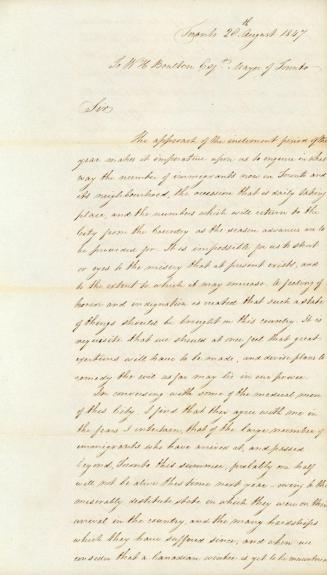 Toronto 28th August 1847
To W H Boulton Esqre Mayor of Toronto
Sir
The approach of the inclement period of the
year makes it imperative upon us to enquire in what
way the number of immigrants now in Toronto and
its neighbourhood, the accession that is daily taking
place, and the numbers which will return to the
City from the Country as the season advances are to
be provided for. It is impossible for us to shut
our eyes to the misery that at present exists, and
to the extent to which it may increase. A feeling of
horror and indignation is created that such a state
of things should be brought in this country. It is
requisite that we should at once feel that great
exertions will have to be made, and devise plans to
remedy the evil as far may lie in our power.
In conversing with some of the medical men
of this City I find that they agree with me in
the fears I entertain, that of the large number of
immigrants who have arrived at, and passed
beyond, Toronto this summer, probably one half
will not be alive this time next year - owing to the
miserably destitute state in which they were on their
arrival in the country, and the many hardships
which they have suffered since, and when we
consider that a Canadian winter is yet to be encountered